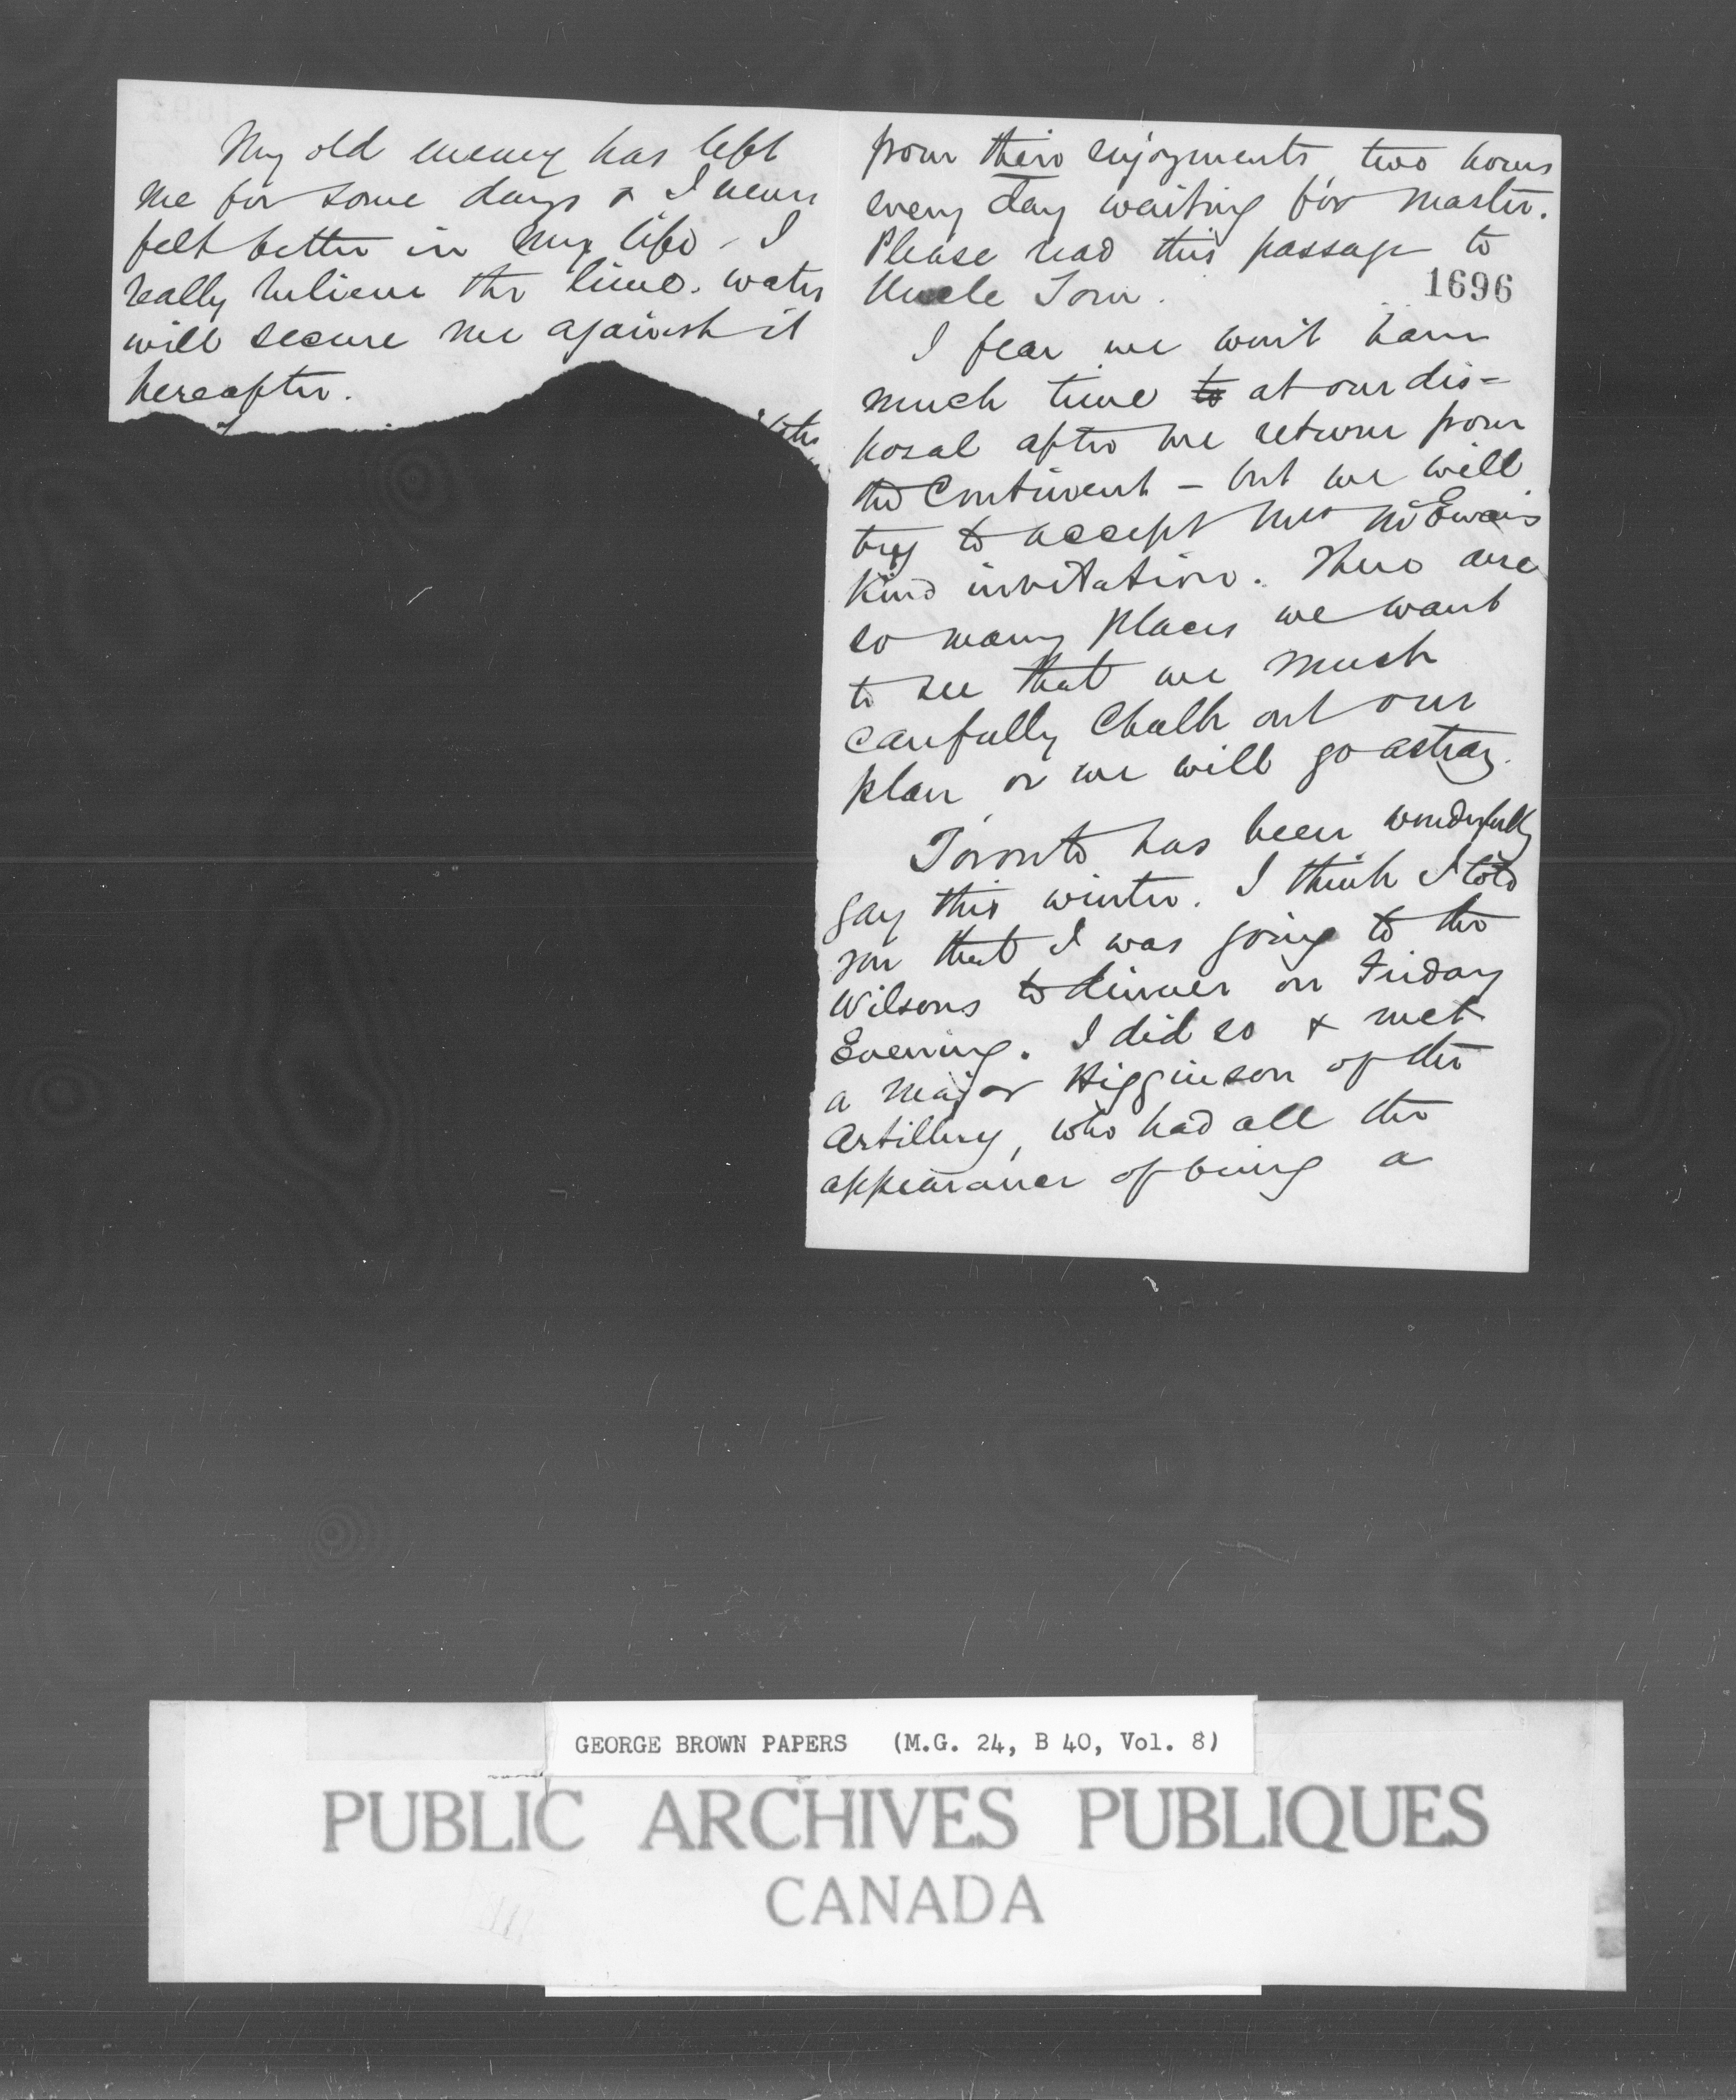 My old enemy has left
me for some days & I never
felt better in my life - I
really believe the lime-water
will secure me against it
hereafter.
from their enjoyments two hours
every day waiting for master.
Please read this passage to
Uncle Tom.
1696
I fear we won't have
much time to at our dis=
posal after we return from
the Continent - but we will
try to accept Mrs McEwan's
kind invitation. There are
so many places we want
to see that we must
carefully chalk out our
plan or we will go astray.
Toronto has been wonderfully
gay this winter. I think I told
you that I was going to the
Wilsons to dinner on Friday
Evening. I did so & met
a Major Higginson of the
Artillery, who had all the
appearance of being a
GEORGE BROWN PAPERS (M.G. 24, B 40, Vol. 8)
PUBLIC ARCHIVES PUBLIQUES
CANADA